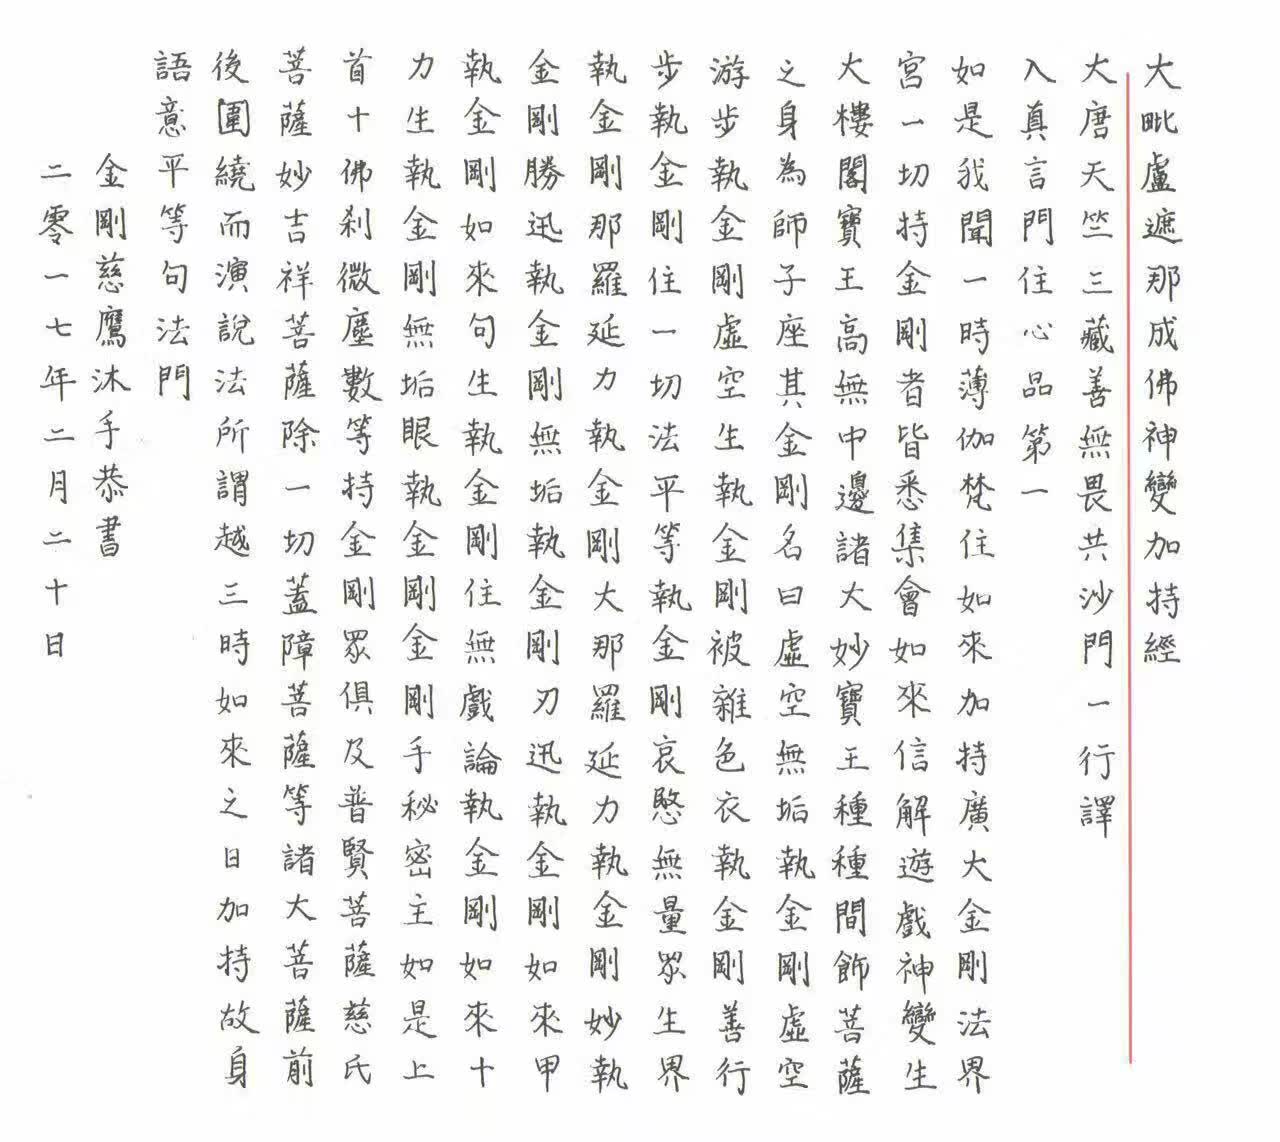 大毗盧遮那成佛神變加持經
大唐天竺三藏善無畏共沙門一行譯
入真言門住心品第一
如是我聞一時薄伽梵住如來加持廣大金剛法界
宮一切持金剛者皆悉集會如來信解遊戲神變生
大樓閣寶王高無中邊諸大妙寶王種種間飾菩薩
之身為師子座其金剛名曰虛空無垢執金剛虛空
游步執金剛虛空生執金剛被雜色衣執金剛善行
步執金剛住一切法平等執金剛哀愍無量眾生界
執金剛那羅延力執金剛大那羅延力執金剛妙執
金剛勝迅執金剛無垢執金剛刃迅執金剛如來甲
執金剛如來句生執金剛住無戲論執金剛如來十
力生執金剛無垢眼執金剛金剛手秘密主如是上
首十佛剎微塵數等持金剛眾俱及普賢菩薩慈氏
菩薩妙吉祥菩薩除一切蓋障菩薩等諸大菩薩前
後圍繞而演說法所謂越三時如來之日加持故身
語意平等句法門
金剛慈鷹沐手恭書
二零一七年二月二十日